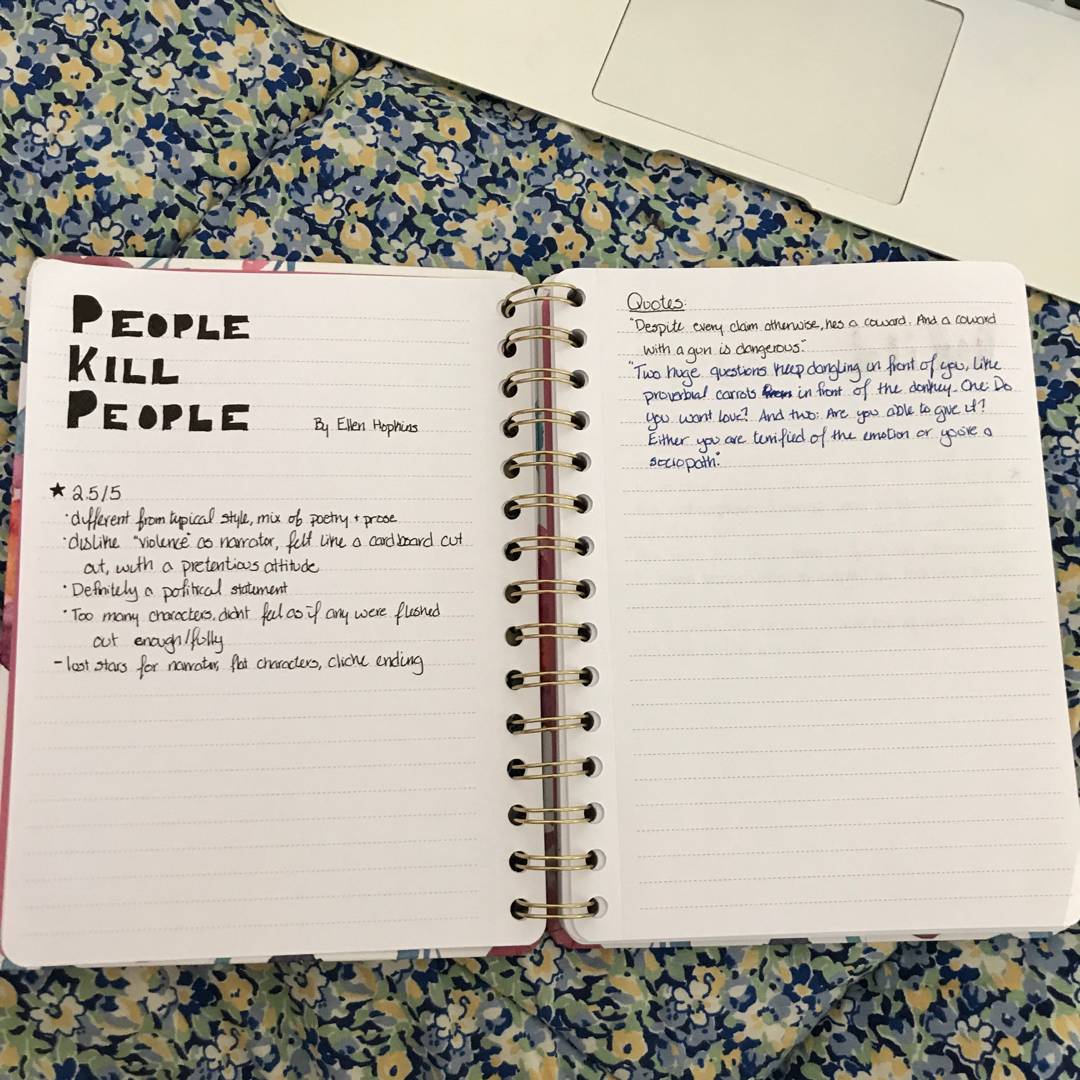 PEOPLE
KILL
PEOPLE
By Ellen Hopkins
★ 2.5/5
· different from typical style, mix of poetry + prose
· dislike "violence" as narrator, felt like a cardboard cut
out, with a pretentious attitude
· Definitely a political statement
· Too many characters. didnt feel as if any were fleshed
out enough/fully
- lost stars for narrator, flat characters, cliche ending
Quotes:
"Despite every claim otherwise, hes a coward. And a coward
with a gun is dangerous."
"Two huge questions keep dangling in front of you, like
proverbial carrots in front of the donkey. One: Do
you want love? And two: Are you able to give it?
Either you are terrified of the emotion or you're a
sociopath."